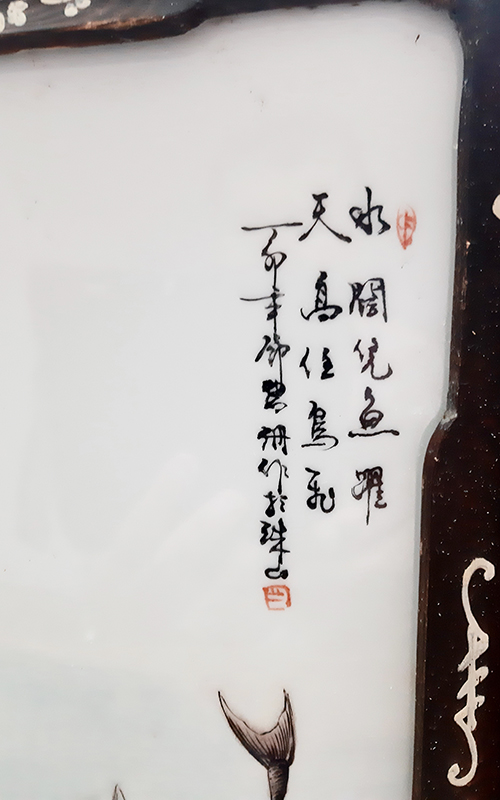 水闊凭魚躍
天高任鳥飛
丁卯年鄧碧珊作於珠山